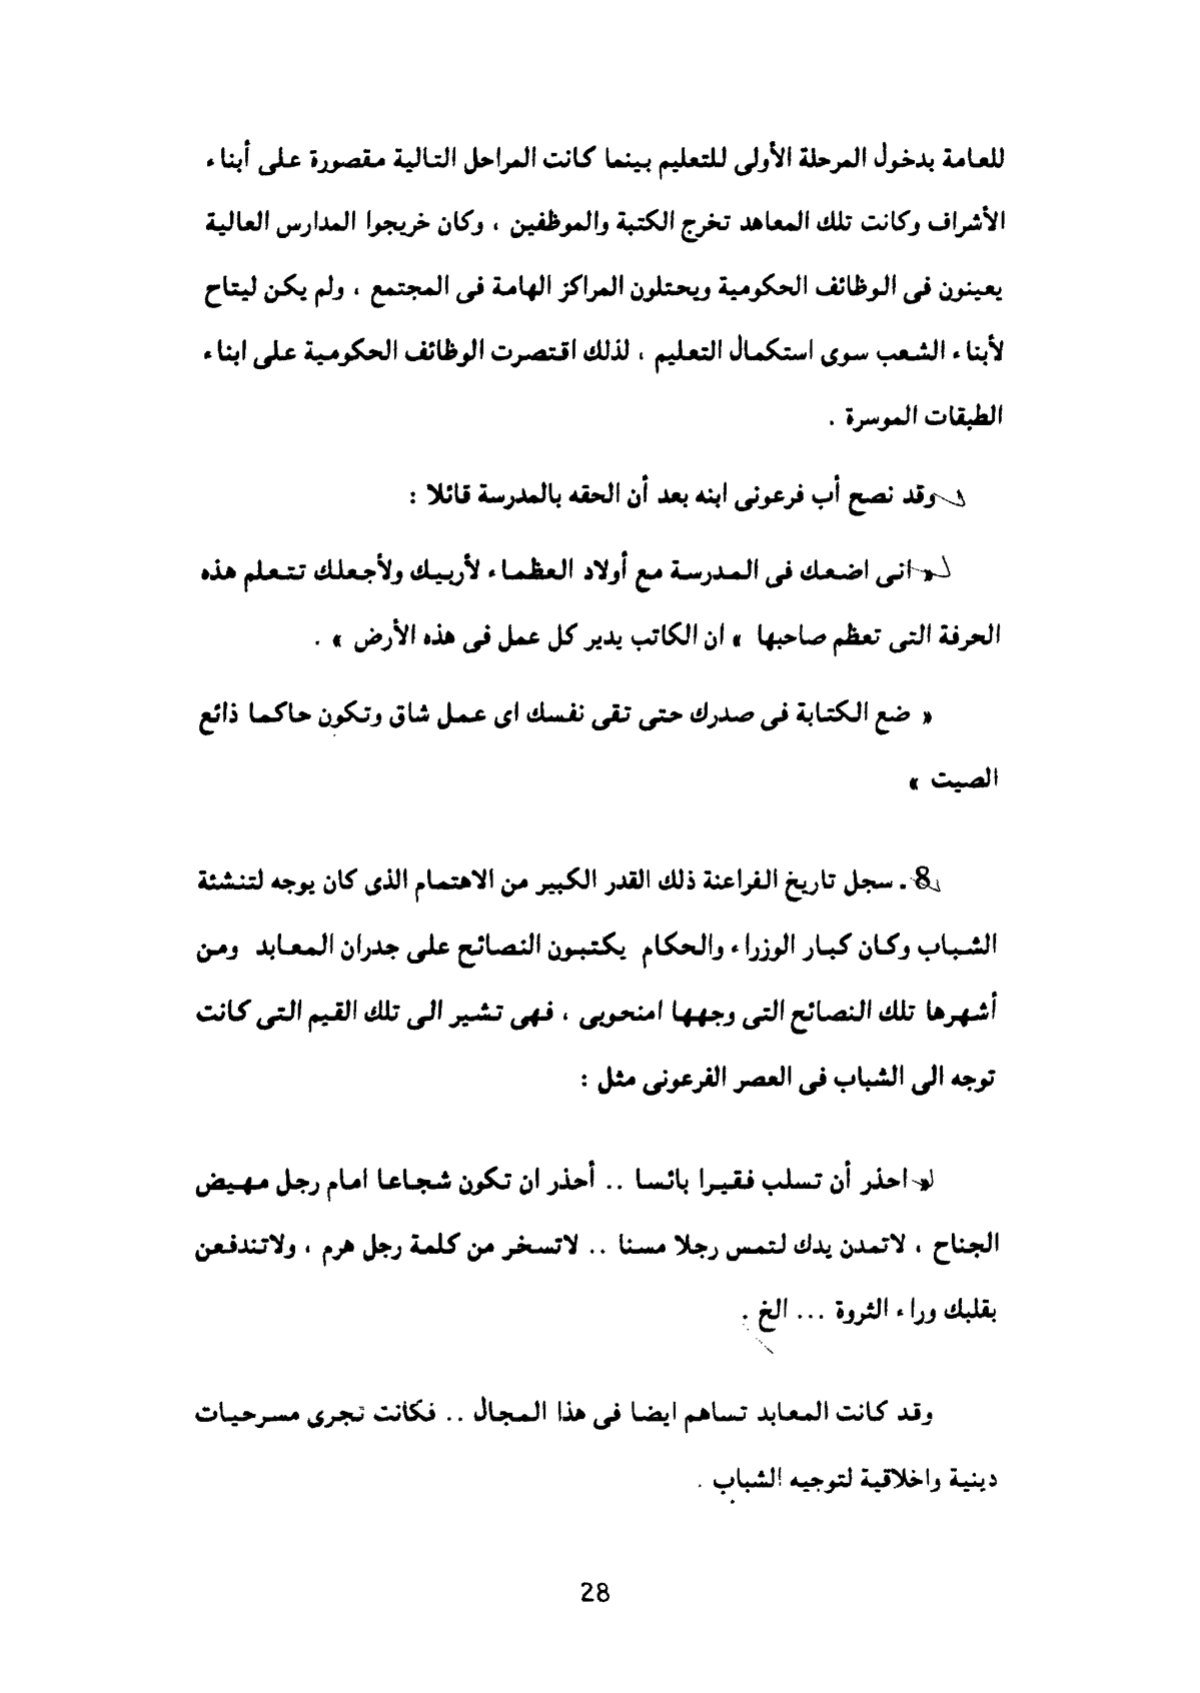 للعامة بدخول المرحلة الأولى للتعليم بينما كانت المراحل التالية مقصورة على أبناء
الأشراف وكانت تلك المعاهد تخرج الكتبة والموظفين ، وكان خريجوا المدارس العالية
يعينون فى الوظائف الحكومية ويحتلون المراكز الهامة فى المجتمع ، ولم يكن ليتاح
لأبناء الشعب سوى استكمال التعليم ، لذلك اقتصرت الوظائف الحكومية على ابناء
الطبقات الموسرة .
وقد نصح أب فرعونى ابنه بعد أن الحقه بالمدرسة قائلا :
« انى اضعك فى المدرسة مع أولاد العظماء لأربيك ولأجعلك تتعلم هذه
الحرفة التى تعظم صاحبها » ان الكاتب يدير كل عمل فى هذه الأرض » .
« ضع الكتابة فى صدرك حتى تقى نفسك اى عمل شاق وتكون حاكما ذائع
الصيت »
8 . سجل تاريخ الفراعنة ذلك القدر الكبير من الاهتمام الذى كان يوجه لتنشئة
الشباب وكان كبار الوزراء والحكام يكتبون النصائح على جدران المعابد ومن
أشهرها تلك النصائح التى وجهها امنحوبى ، فهى تشير الى تلك القيم التى كانت
توجه الى الشباب فى العصر الفرعونى مثل :
« احذر أن تسلب فقيرا بائسا .. أحذر ان تكون شجاعا امام رجل مهيض
الجناح ، لاتمدن يدك لتمس رجلا مسنا .. لاتسخر من كلمة رجل هرم ، ولاتندفعن
بقلبك وراء الثروة ... الخ .
وقد كانت المعابد تساهم ايضا فى هذا المجال .. فكانت تجرى مسرحيات
دينية واخلاقية لتوجيه الشباب .
28